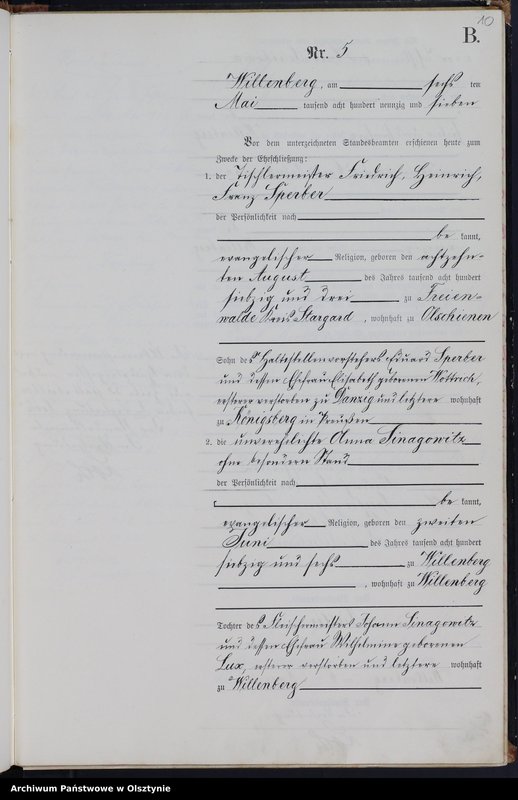 10
B.
Nr. 5
Willenberg, am sechs ten
Mai tausend acht hundert neunzig und sieben
Vor dem unterzeichneten Standesbeamten erschienen heute zum
Zwecke der Eheschließung:
1. der Tischlermeister Friedrich, Heinrich,
Franz Sperber
der Persönlichkeit nach
be kannt,
evangelischer Religion, geboren den achtzehn-
ten August des Jahres tausend acht hundert
siebzig und drei zu Freien-
walde Kreis Stargard, wohnhaft zu Olschienen
Sohn des Haltestellenvorstehers Eduard Sperber
und dessen Ehefrau Elisabeth geborenen
ersterer verstorben zu Danzig und letztere wohnhaft
zu Königsberg in Preußen
2. die unverehelichte Anna Sinagowitz
ohne besondern Stand
der Persönlichkeit nach
be kannt,
evangelischer Religion, geboren den zweiten
Juni des Jahres tausend acht hundert
siebzig und sechs zu Willenberg
, wohnhaft zu Willenberg
Tochter des Fleischermeisters Johann Sinagowitz
und dessen Ehefrau Wilhelmine geborenen
Lux, ersterer verstorben und letztere wohnhaft
zu Willenberg
Archiwum Państwowe w Olsztynie